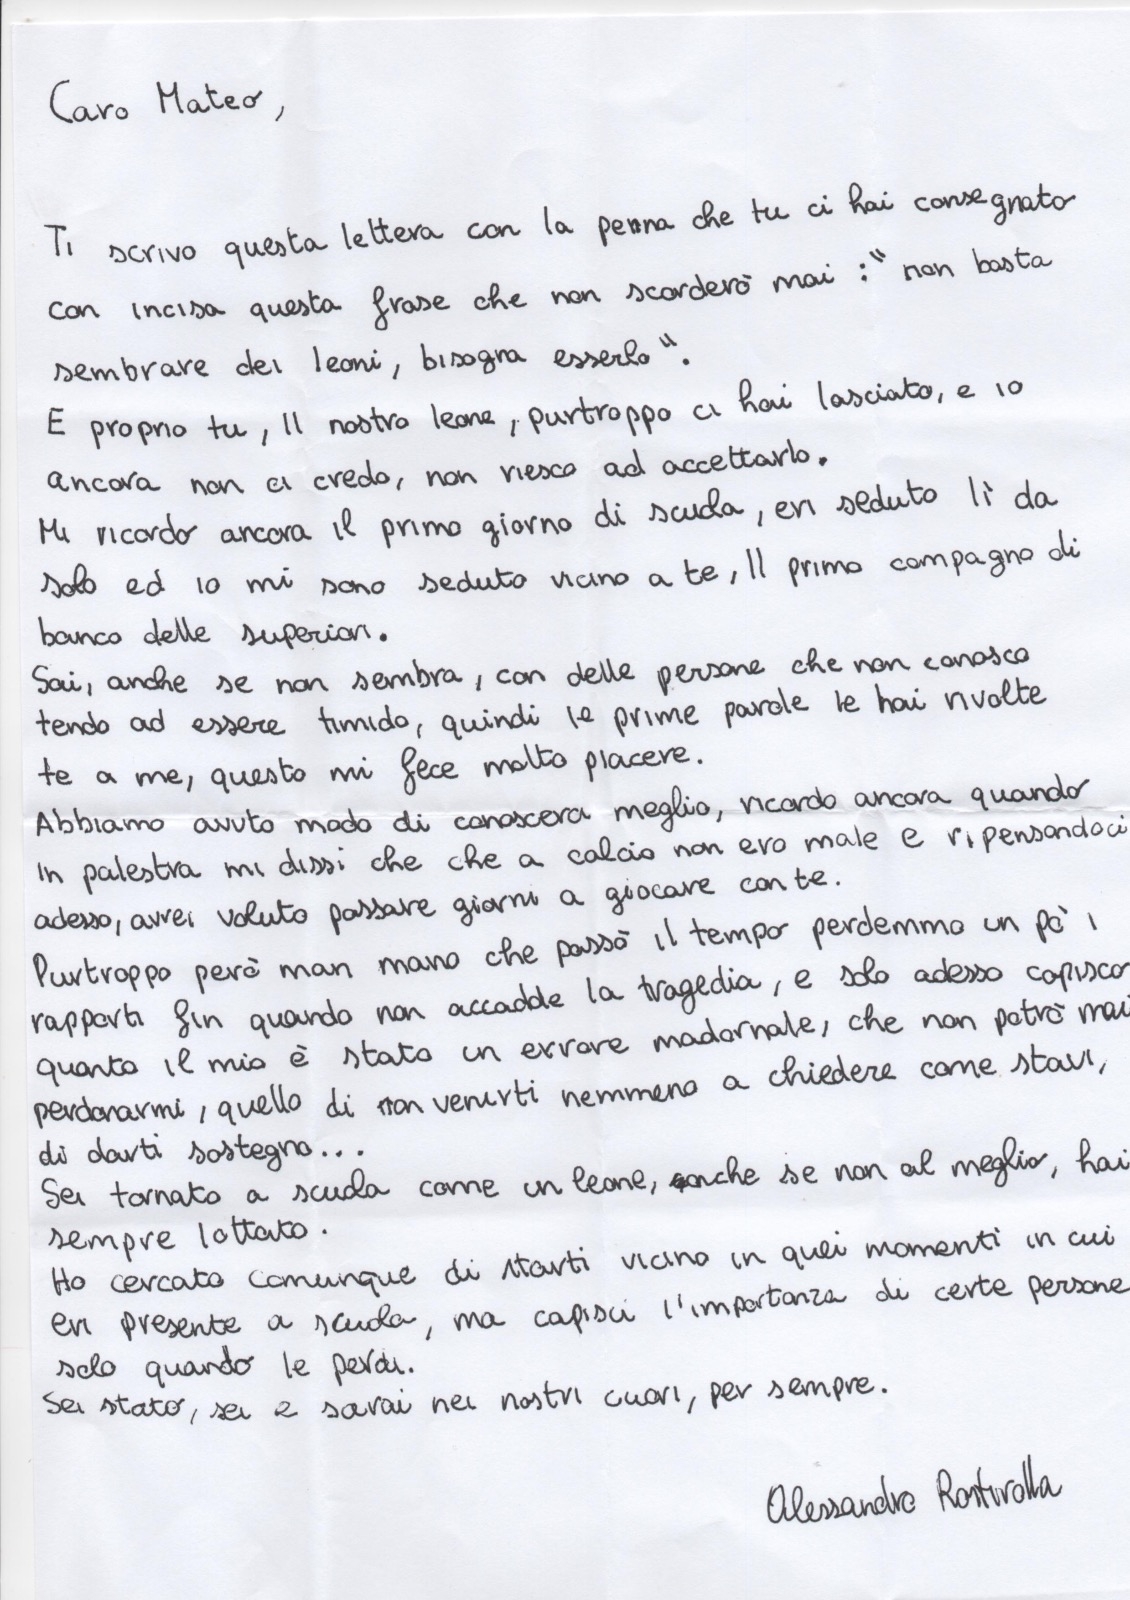 Caro Mateo,
Ti scrivo questa lettera con la penna che tu ci hai consegnato
con incisa questa frase che non scorderò mai :" non basta
sembrare dei leoni, bisogna esserlo".
E proprio tu, il nostro leone, purtroppo ci hai lasciato, e io
ancora non ci credo, non riesco ad accettarlo.
Mi ricordo ancora il primo giorno di scuola, eri seduto lì da
solo ed io mi sono seduto vicino a te, il primo compagno di
banco delle superiori.
Sai, anche se non sembra, con delle persone che non conosco
tendo ad essere timido, quindi le prime parole le hai rivolte
te a me, questo mi fece molto piacere.
Abbiamo avuto modo di conoscerci meglio, ricordo ancora quando
in palestra mi dissi che che a calcio non ero male e ripensandoci
adesso, avrei voluto passare giorni a giocare con te.
Purtroppo però man mano che passò il tempo perdemmo un pò i
rapporti fin quando non accadde la tragedia, e solo adesso capisco
quanto il mio è stato un errore madornale, che non potrò mai
perdonarmi, quello di non venirti nemmeno a chiedere come stavi,
di darti sostegno...
Sei tornato a scuola come un leone, anche se non al meglio, hai
sempre lottato.
Ho cercato comunque di starti vicino in quei momenti in cui
eri presente a scuola, ma capisci l'importanza di certe persone
solo quando le perdi.
Sei stato, sei e sarai nei nostri cuori, per sempre.
Alessandro Rostirolla